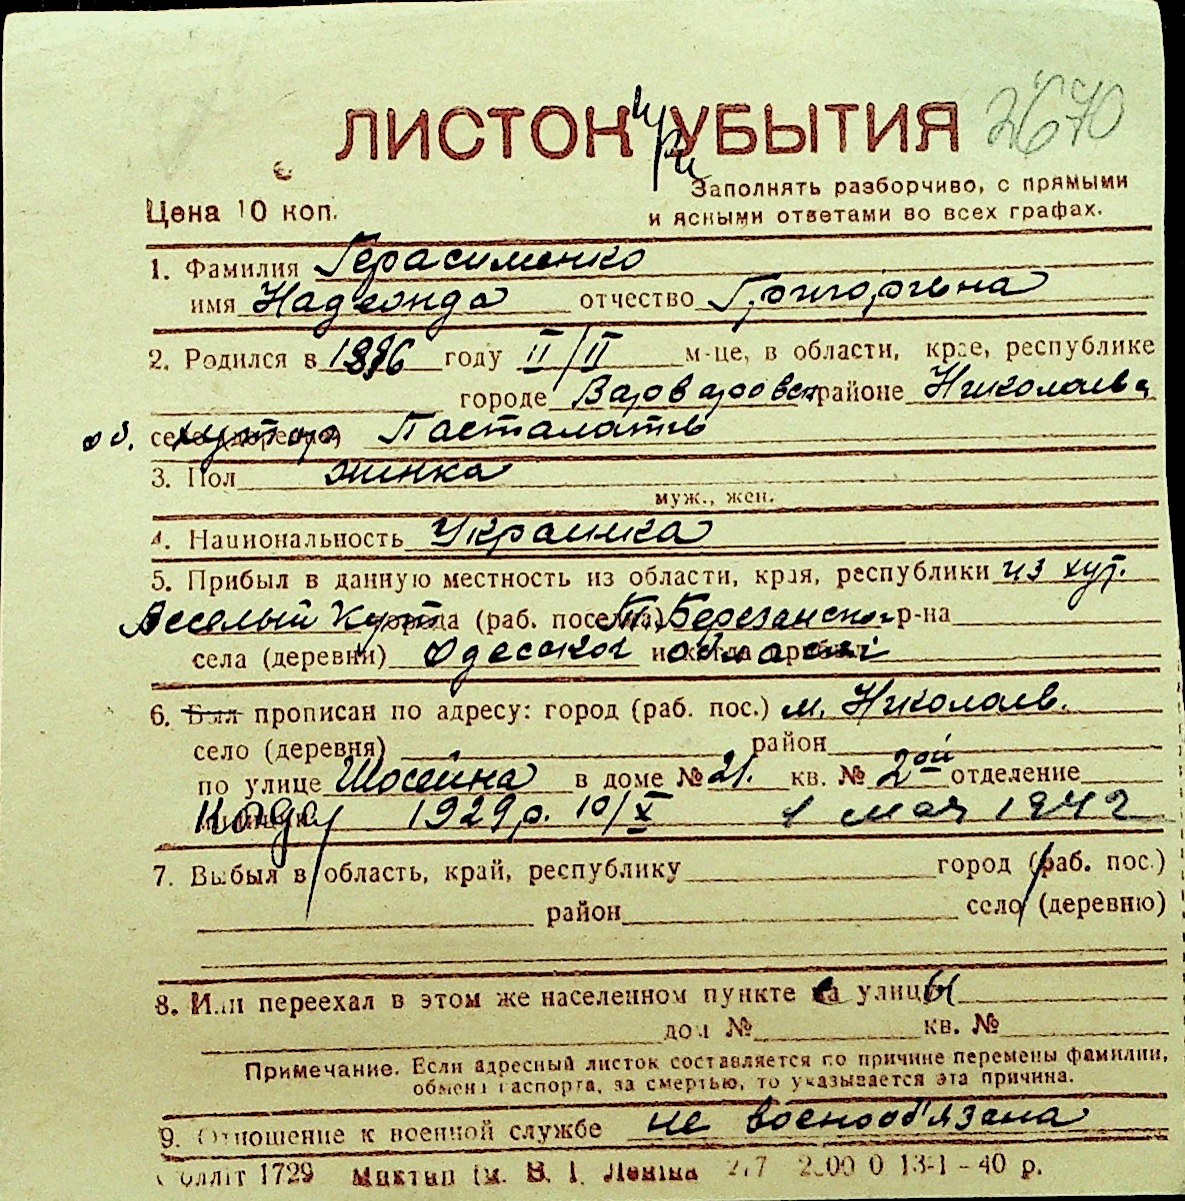 ЛИСТОК УБЫТИЯ 2670
при
Заполнять разборчиво, с прямыми
Цена 10 коп. и ясными ответами во всех графах.
1. Фамилия Герасименко
имя Надежда отчество Григоргевна
2. Родился в 1896 году II/II м-це, в области, крае, республике
городе Варваровск районе Николаевс
об. село (деревне) хутор
3. Пол жинка
муж., жен.
4. Национальность Украинка
5. Прибыл в данную местность из области, края, республики из хут.
Веселый Кут города (раб. поселка) Т. Березанског р-на
села (деревни) Одесског области и когда прибыл
6. Был прописан по адресу: город (раб. пос.) м. Николаев.
село (деревня) район
по улице Шосейна в доме № 21. кв. № 2ой отделение
милиции 1929р. 10/X 1 мая 1942
7. Выбыл в область, край, республику город (раб. пос.)
район село (деревню)
8. Или переехал в этом же населенном пункте с улицы
дом № кв. №
Примечание. Если адресный листок составляется по причине перемены фамилии,
обмена паспорта, за смертью, то указывается эта причина.
9. Отношение к военной службе не военооб'язана
Облліт 1729 Миктип ім. В. І. Леніна 2000 0 13-1 - 40 р.